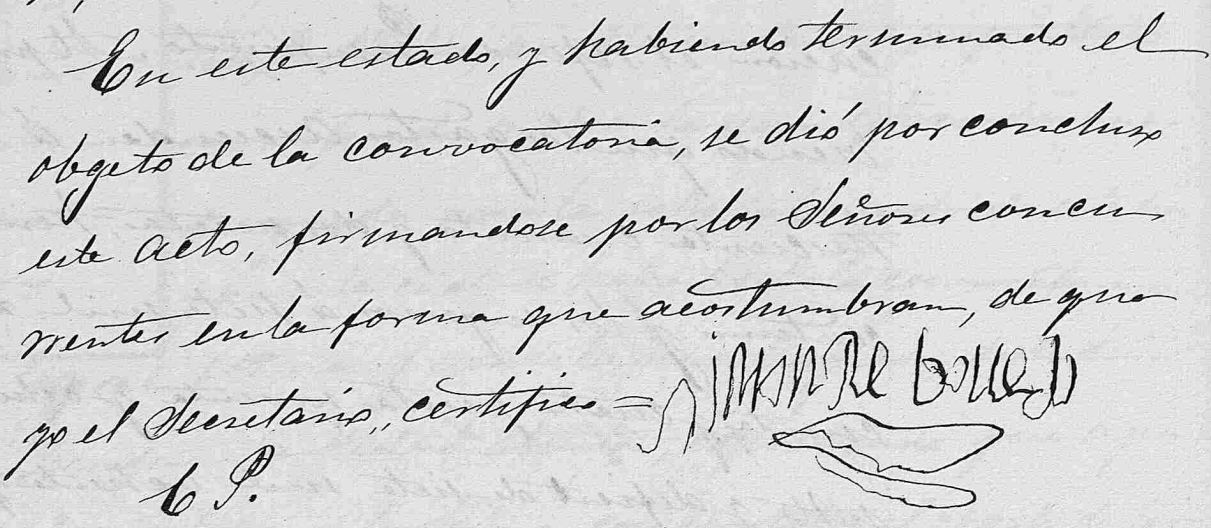 En este estado, y habiendo terminado el
obgeto de la convocatoria, se dió por concluso
este acto, firmandose por los Señores concu
rrentes en la forma que acostumbran, de que
yo el Secretario, certifico =
E P.